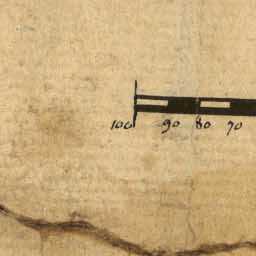 100 90 80 70